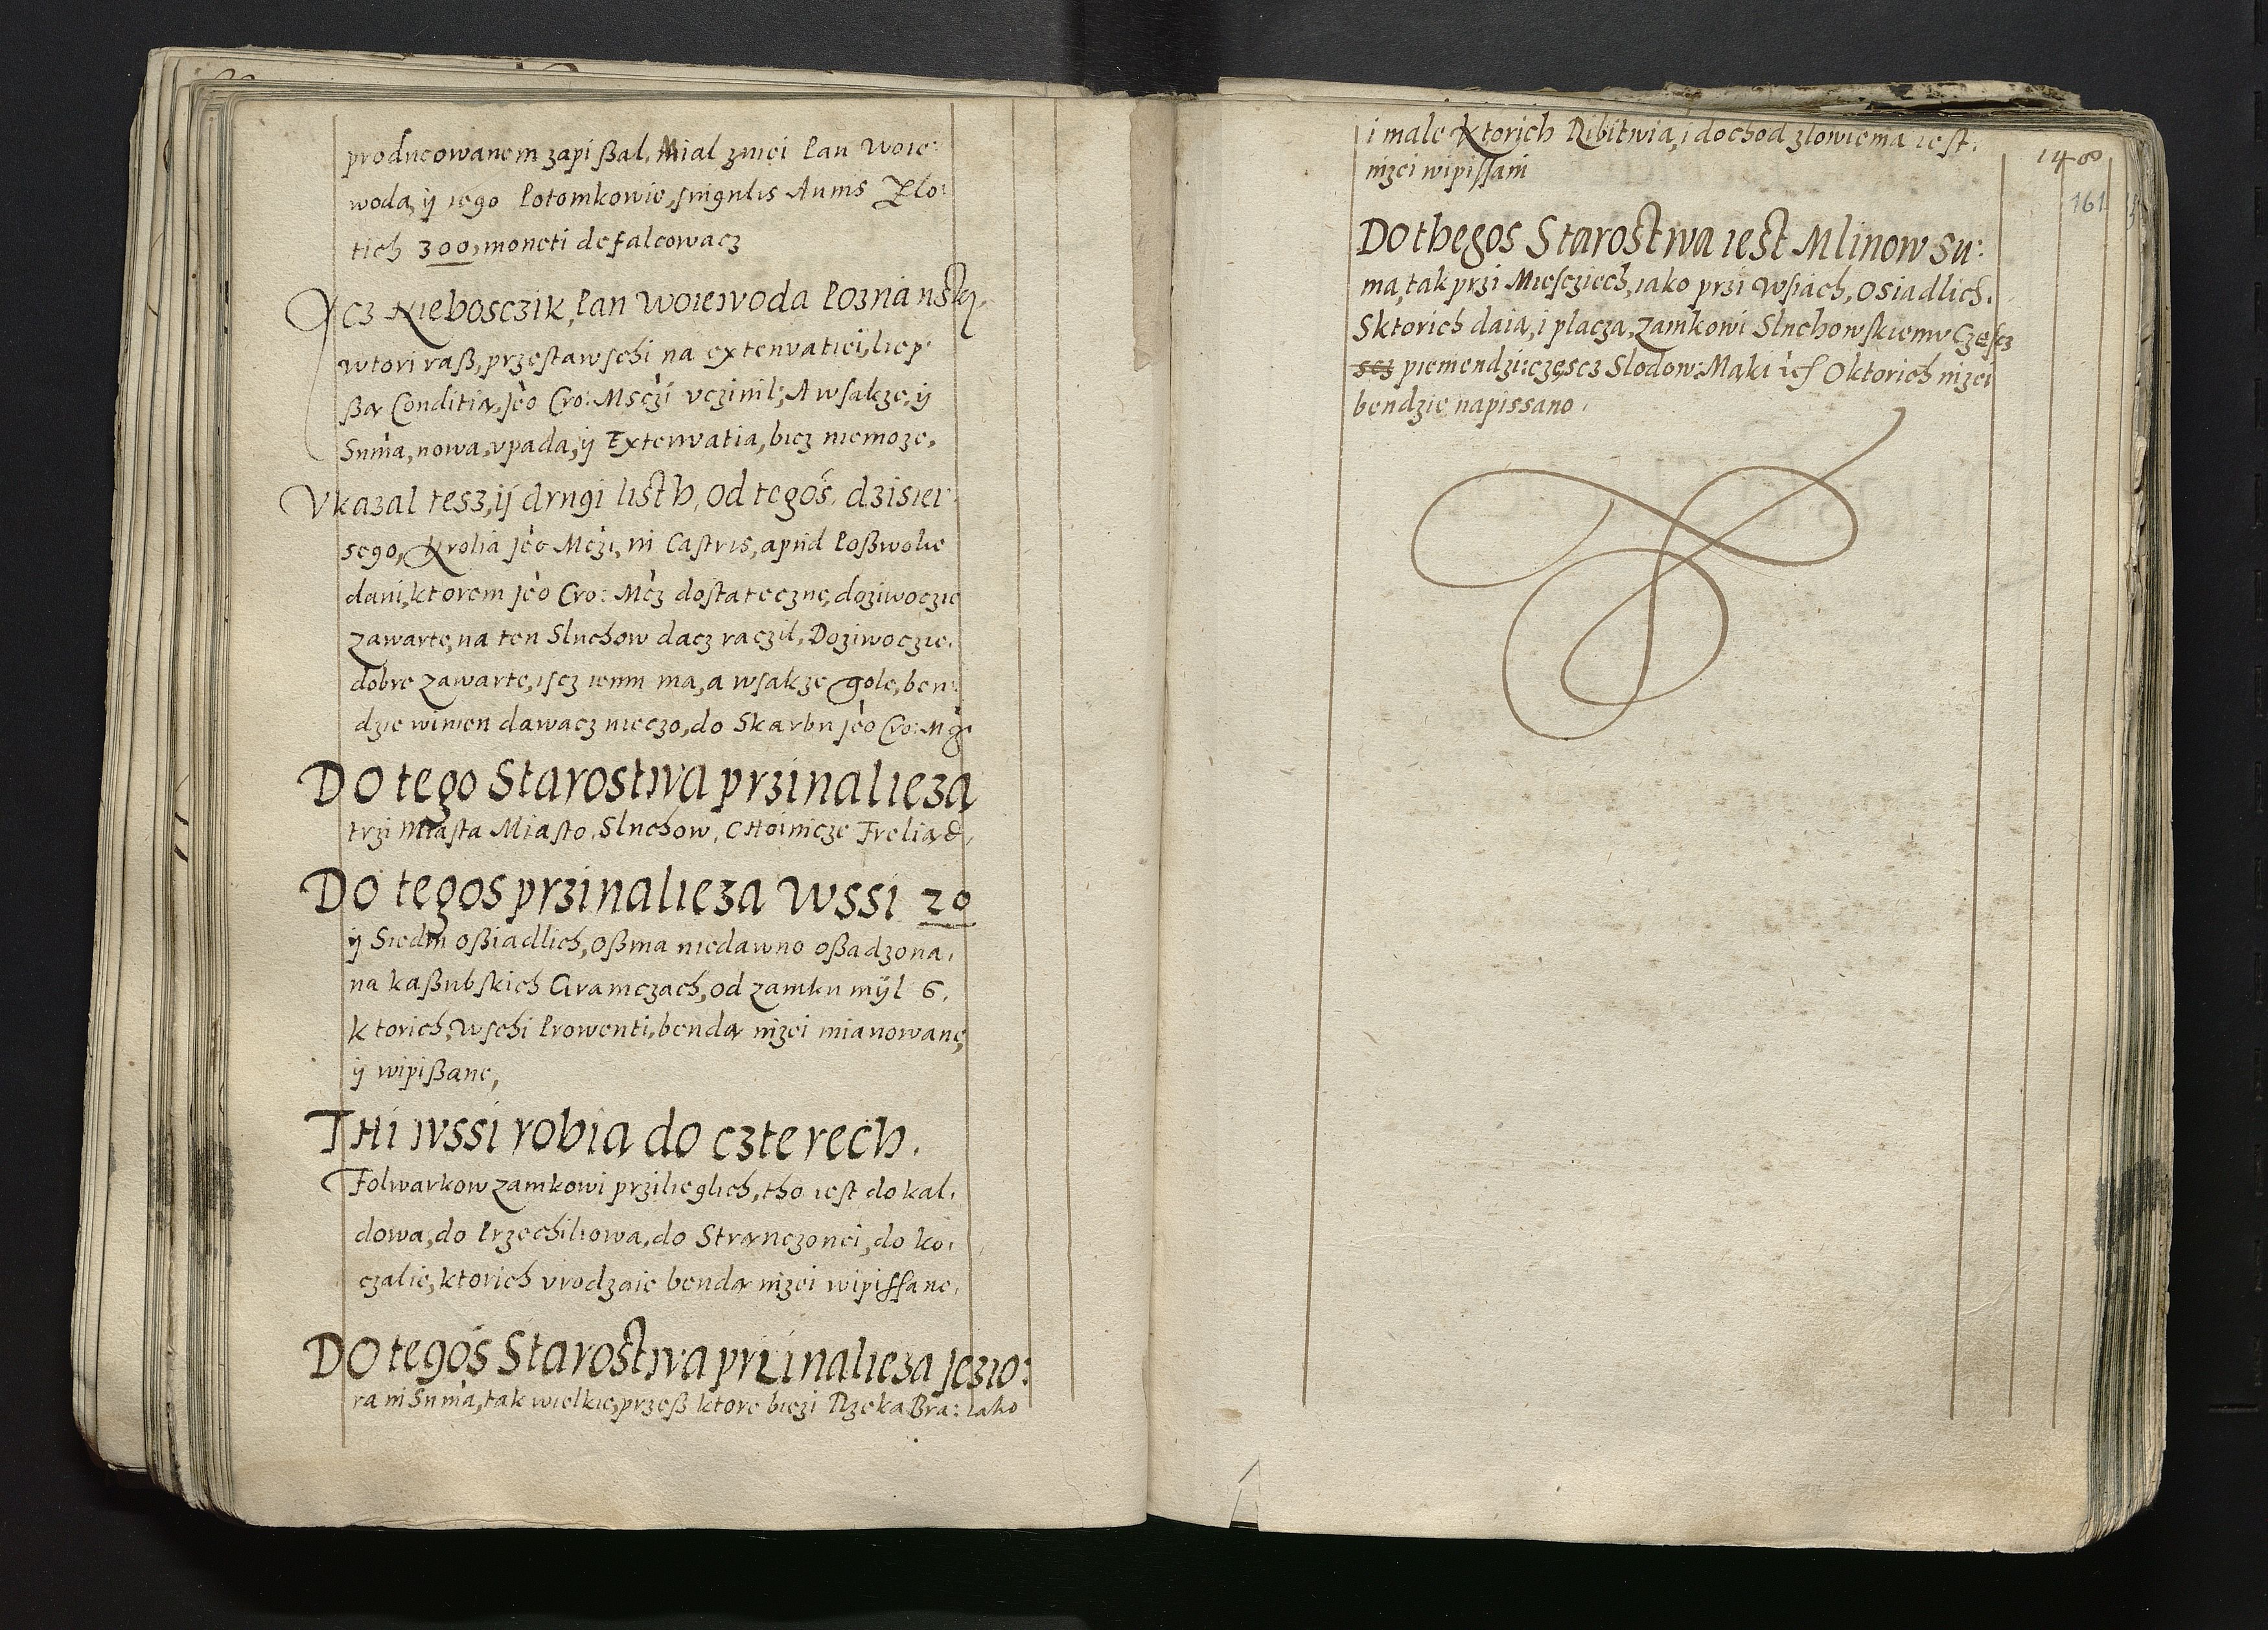 producowanem zapißal, Mial zniei Pan Woie:
woda, ij iego Potomkowie, singulis Annis Zlo:
tich 300, moneti defalcowacz
Acz Nieboscżik, Pan Woiewoda Poznansky,
wtori raß, przestawschi na extenuatiei, liep:
ßa Conditia, Jeo Cro: Msczi vczinil; A wsakze, ij
Suma, nowa, vpada, ij Extenuatia, bicz niemoze.
Vkazal tesz, ij drugi listh, od tegoś, dzisiei
sego, Krolia Jeo Mczi, in Castris, apud Poßwolie
dani, ktorem Jeo Cro: Mcz dostateczne, doziwoczie
zawarte, na ten Sluchow dacz raczil, Doziwoczie.
dobre zawarte, iscz iemu ma, a wsakze gole, ben:
dzie winien dawacz nieczo, do Skarbu Jeo Cro: Mci
DO tego Starostwa przinalieza
trzi Miasta Miasto, Sluchow, CHoinicze Freliad,
DO tegos przinalieza Wssi 20
ij Siedm oßiadlich, oßma niedawno oßadzona,
na kaßubskich Graniczach, od zamku mijl 6.
ktorich, wschi Prowenti, benda nizei mianowane,
ij wipißane,
THi wssi robia do czterech.
Folwarkow zamkowi przilieglich, tho iest do kal,
dowa, do Przechliowa, do Stranczonei, do ko,
czalie, ktorich vrodzaie benda nizei wipissane,
DO tegoś Starostwa przinalieza Jezio:
ra in Suma, tak wielkie, przeß ktore biezi Rzeka Bra: iako
i male ktorich Ribitwia, i dochod zlowienia iest:
nizei wipissani
148
161
DO thegos Starostwa iest Mlinow Su:
ma, tak przi Miesciech, iako przi Wsiach, osiadlich.
Sktorich daia, i placza, zamkowi Sluchowskiemu Czescz
scz pieniendzi: częscz Slodow: Mąki ież Oktorich nizei
bendzie napissano.